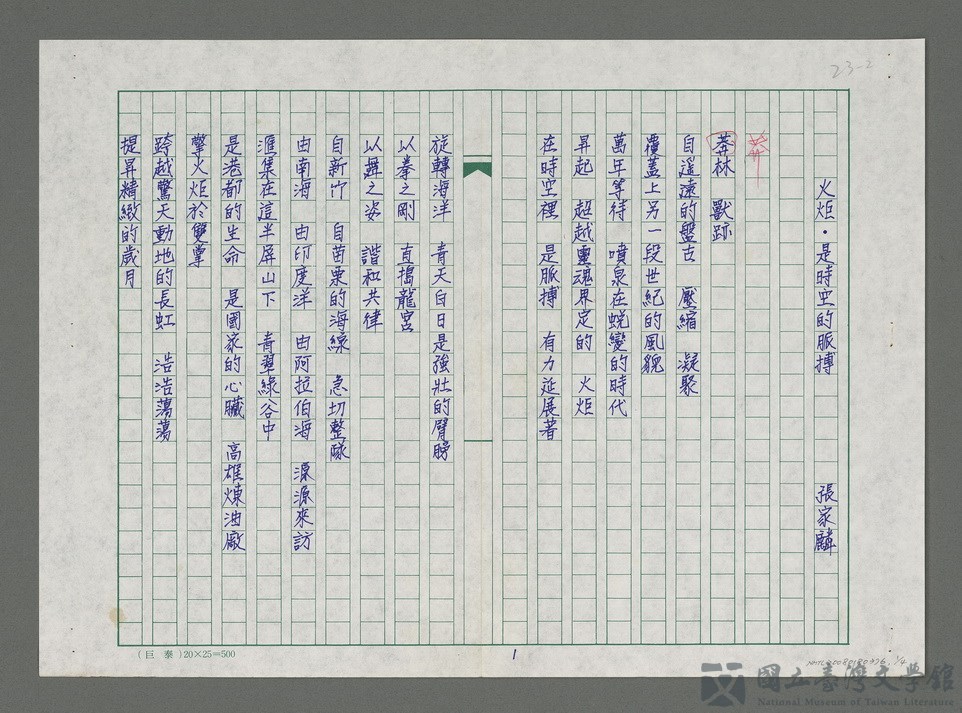 23-2
火炬·是時空的脈搏　張家麟
莽
莽林　獸跡
自遥遠的盤古　壓縮　凝聚
覆蓋上另一段世紀的風貌
萬年等待　噴泉在蛻變的時代
昇起　超越靈魂界定的　火炬
在時空裡　是脈搏　有力延展著
旋轉海洋　青天白日是強壯的臂膀
以拳之剛　直搗龍宮
以舞之姿　諧和共律
自新竹　自苗栗的海線　急切整隊
由南海　由印度洋　由阿拉伯海　源源來訪
滙集在這半屏山下　青翠綠谷中
是港都的生命　是國家的心臟　高雄煉油廠
擎火炬於雙掌
跨越驚天動地的長虹　浩浩蕩蕩
提昇精緻的歲月
(巨泰)20×25=500
1
1/4
國立臺灣文學館
National Museum of Taiwan Literature